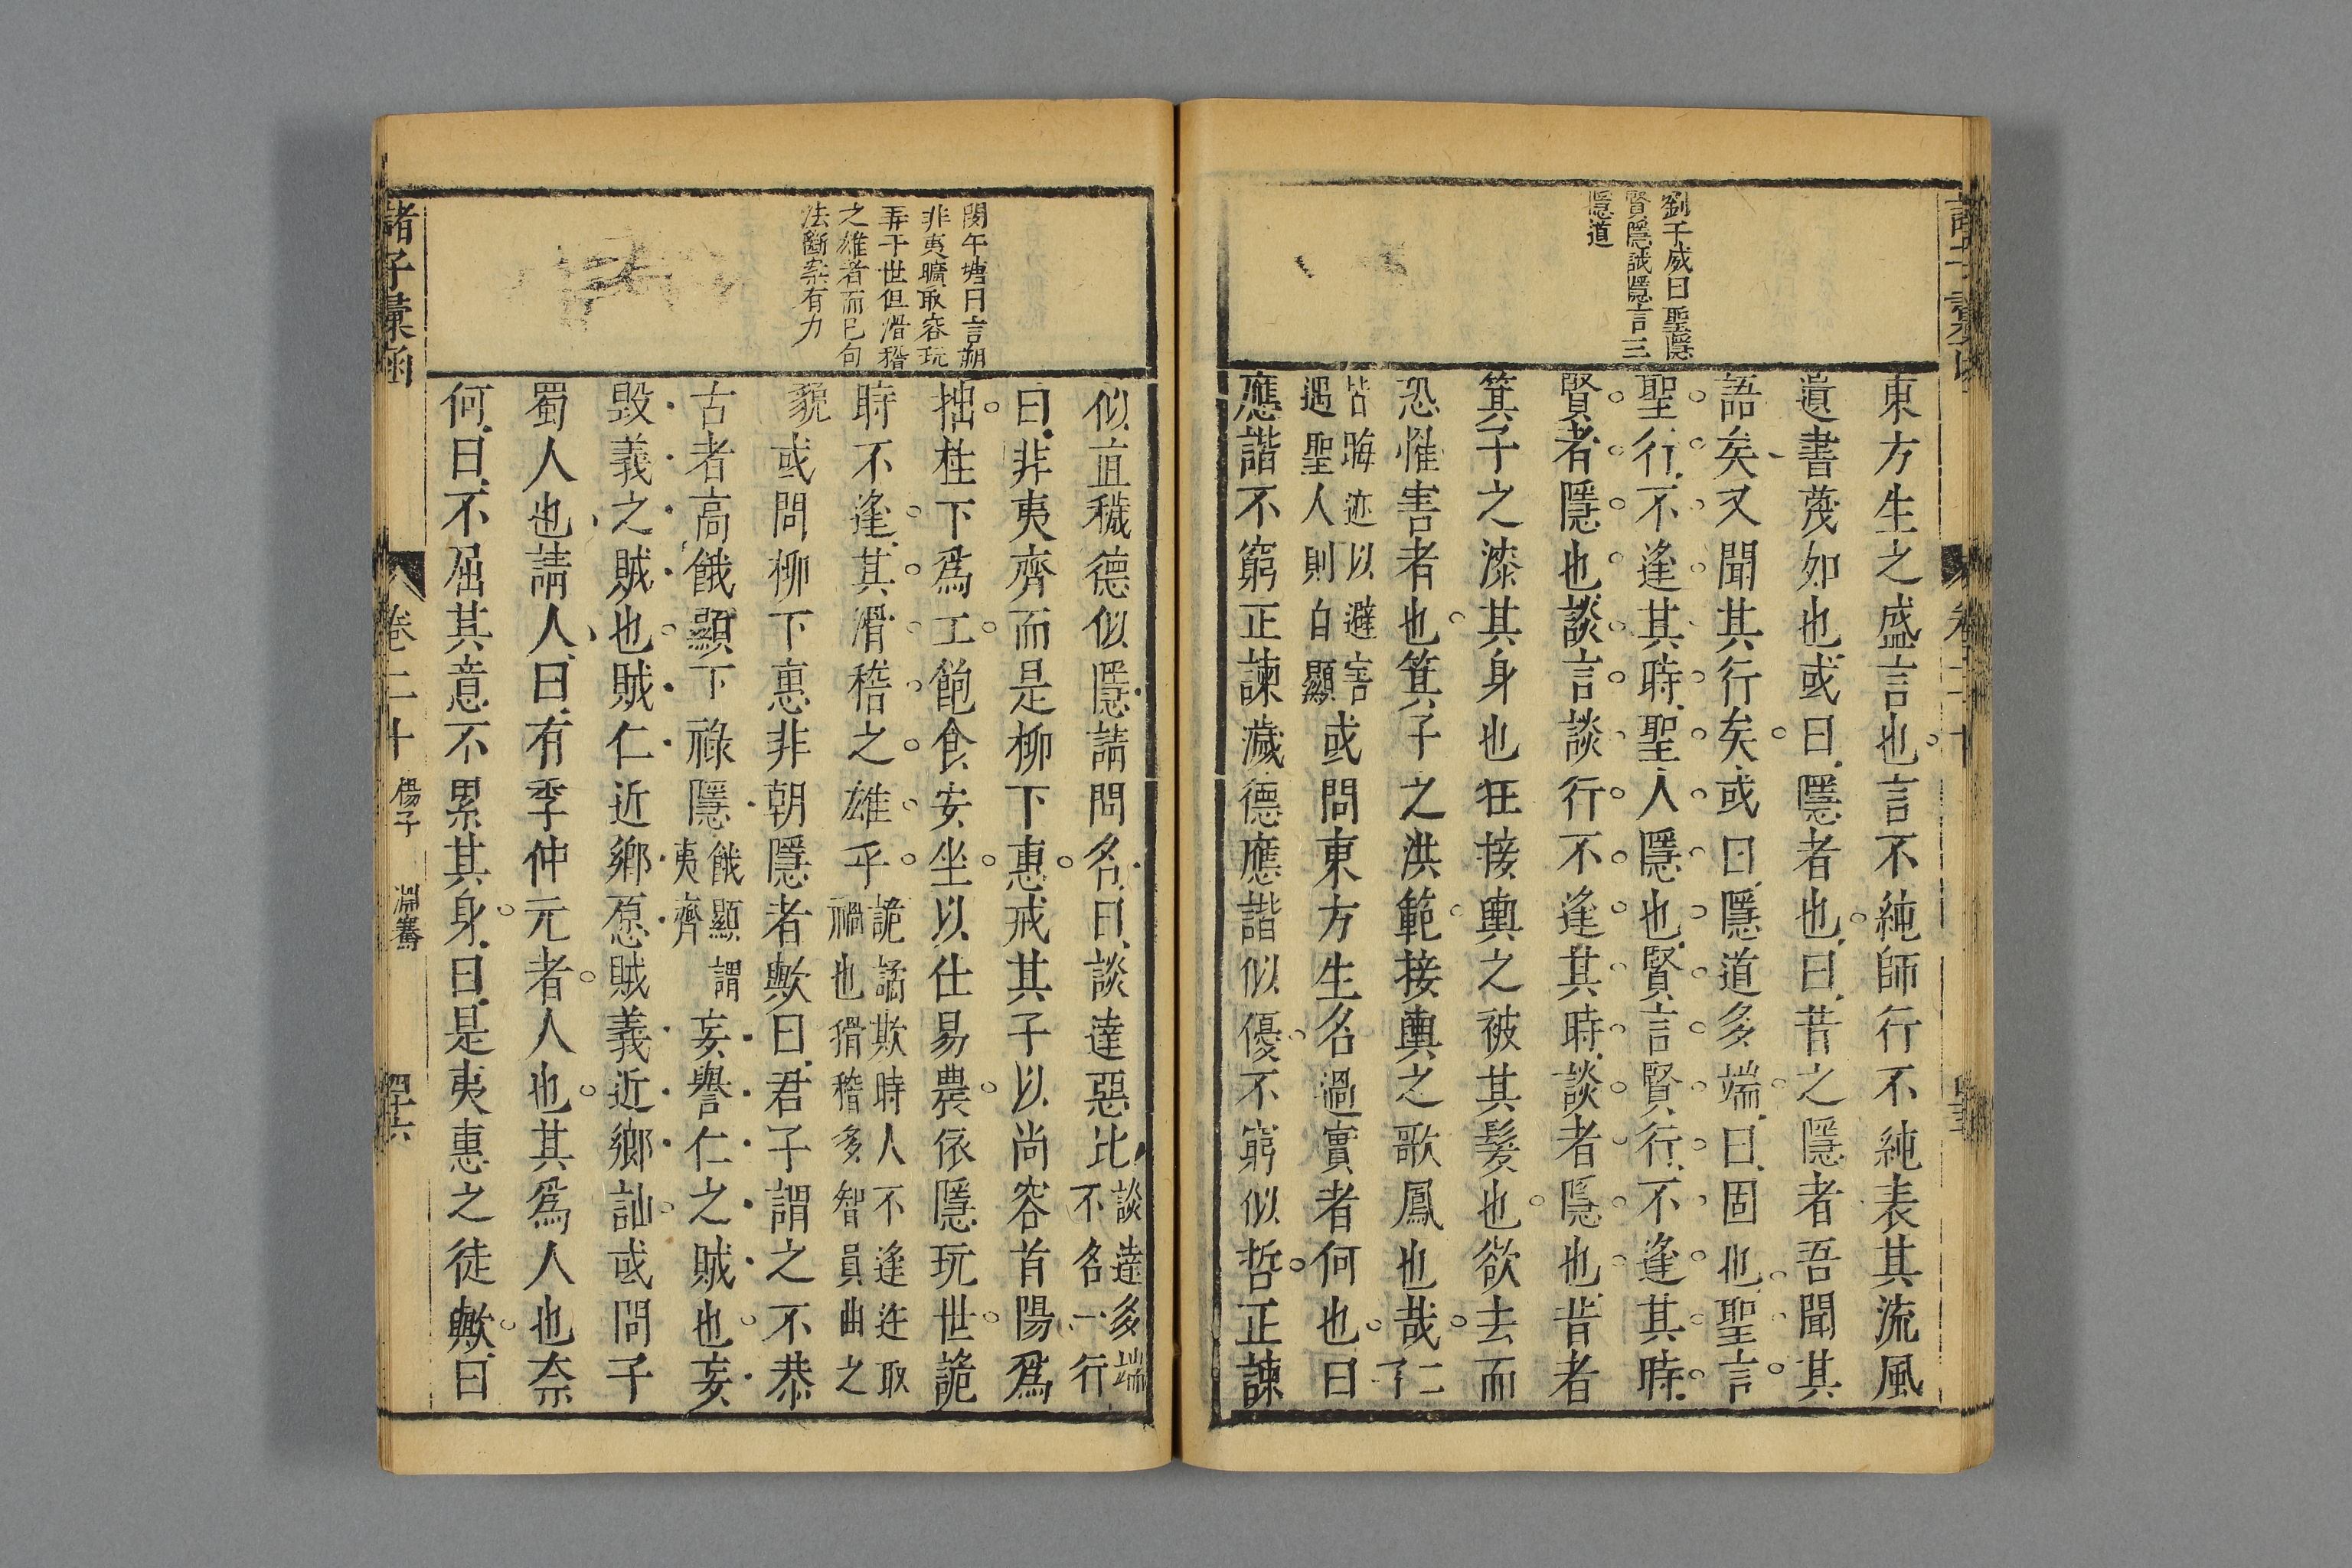 劉子威曰聖隱
賢隱誠隱言三
隱道
東方生之盛言也言不純師行不純表其流風
遺書蔑如也或曰隱者也曰昔之隱者吾聞其
語矣又聞其行矣或曰隱道多端曰固也聖言
聖行不逢其時聖人隱也賢言賢行不逢其時
賢者隱也談言談行不逢其時談者隱也昔者
箕子之漆其身也狂接輿之被其髮也欲去而
恐惟害者也箕子之洪範接輿之歌鳳也哉仁了
皆晦迹以避害
遇聖人則自顯
或問東方生名過實者何也曰
應諧不窮正諫濊德應諧似優不窮似哲正諫
閔午塘曰言朔
非夷曠取容玩
弄于世但滑稽
之雄者而已句
法斷案有力
似直穢德似隱請問名曰談達惡比
談達多端
不名一行
曰非夷齊而是柳下惠戒其子以尚容首陽爲
拙柱下爲工飽食安坐以仕易農依隱玩世詭
時不逢其滑稽之雄乎
詭譎欺時人不逢迕取
禍也猾稽多智員曲之
貌
或問柳下惠非朝隱者歟曰君子謂之不恭
古者高餓顯下祿隱
餓顯謂
夷齊
妄譽仁之賊也妄
毀義之賊也賊仁近鄉愿賊義近鄉訕或問子
蜀人也請人曰有季仲元者人也其爲人也奈
何曰不屈其意不累其身曰是夷惠之徒歟曰
諸子彙函
卷二十
楊子
淵騫
四十六